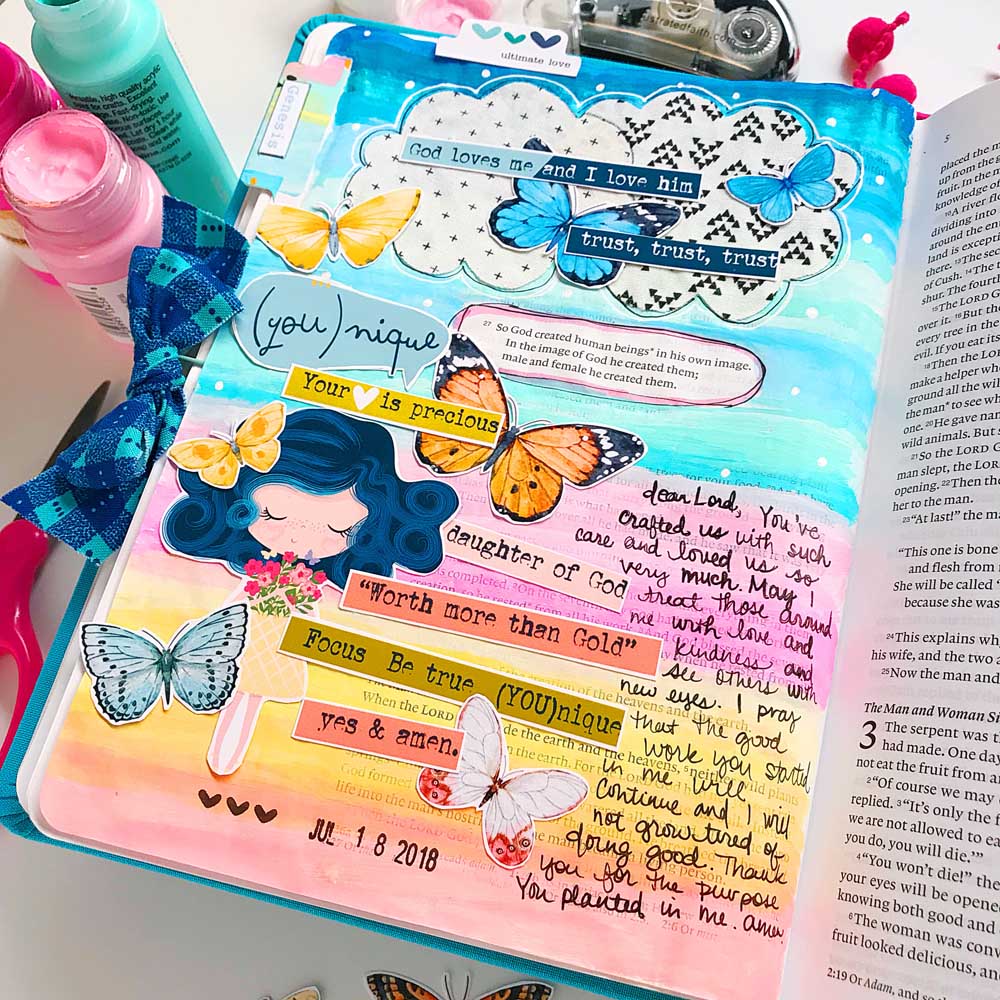 ultimate love
Genesis
God loves me and I love him
trust, trust, trust
(you)nique
27 So God created human beings* in his own image.
In the image of God he created them;
male and female he created them.
Your is precious
daughter of God
"Worth more than Gold"
Focus Be true (YOU)nique
yes & amen.
JUL 18 2018
dear Lord, You've
crafted us with such
care and loved us so
very much. May I
treat those around
me with love and
kindness and
see others with
new eyes. I pray
that the good
work you started
in me will
continue and I will
not grow tired of
doing good. Thank
you for the purpose
You planted in me. amen.
5
placed the m
up from the g
fruit. In the m
knowledge of
10A river flo
dividing into
around the ent
land is excepti
there. 13The sec
of Cush.
shur. The fourth
15The LORD G
over it. 16But the
every tree in the
evil. If you eat its
18Then the Lor
make a helper wh
ground all the wil
the man* to see wh
one. 20He gave nam
wild animals. But s
21So the LORD G
man slept, the LOR
opening. 22Then the
her to the man.
23"At last!" the ma
"This one is bone
and flesh from
She will be called '
because she was
24This explains wh
his wife, and the two a
25Now the man and
The Man and Woman S
3 The serpent was th
had made. One day
not eat the fruit from an
2"Of course we may
replied. 3"It's only the f
we are not allowed to ea
you do, you will die.'"
4"You won't die!" the
your eyes will be opene
knowing both good and
6The woman was conv
fruit looked delicious, an
2:19 Or Adam, and so th